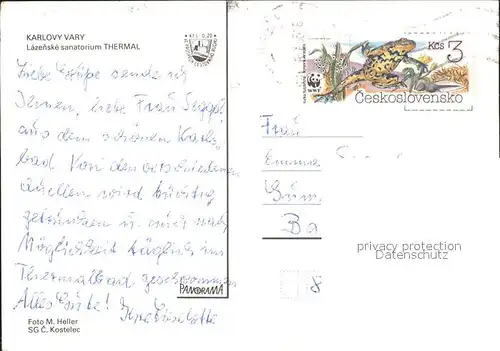 KARLOVY VARY
Lázeňské sanatorium THERMAL
Liebe Grüße sende ich
Ihnen, liebe Frau
aus dem schönen Karls-
bad. Von den verschiedenen
Quellen wird
getrunken u. auch nach
Möglichkeit täglich im
Thermalbad geschwommen
Alles Gute! Ihre
Foto M. Heller
SG Č. Kostelec
PANORAMA
Kčs 3
WWF
Československo
Frau
Emma
Ba
privacy protection
Datenschutz
8